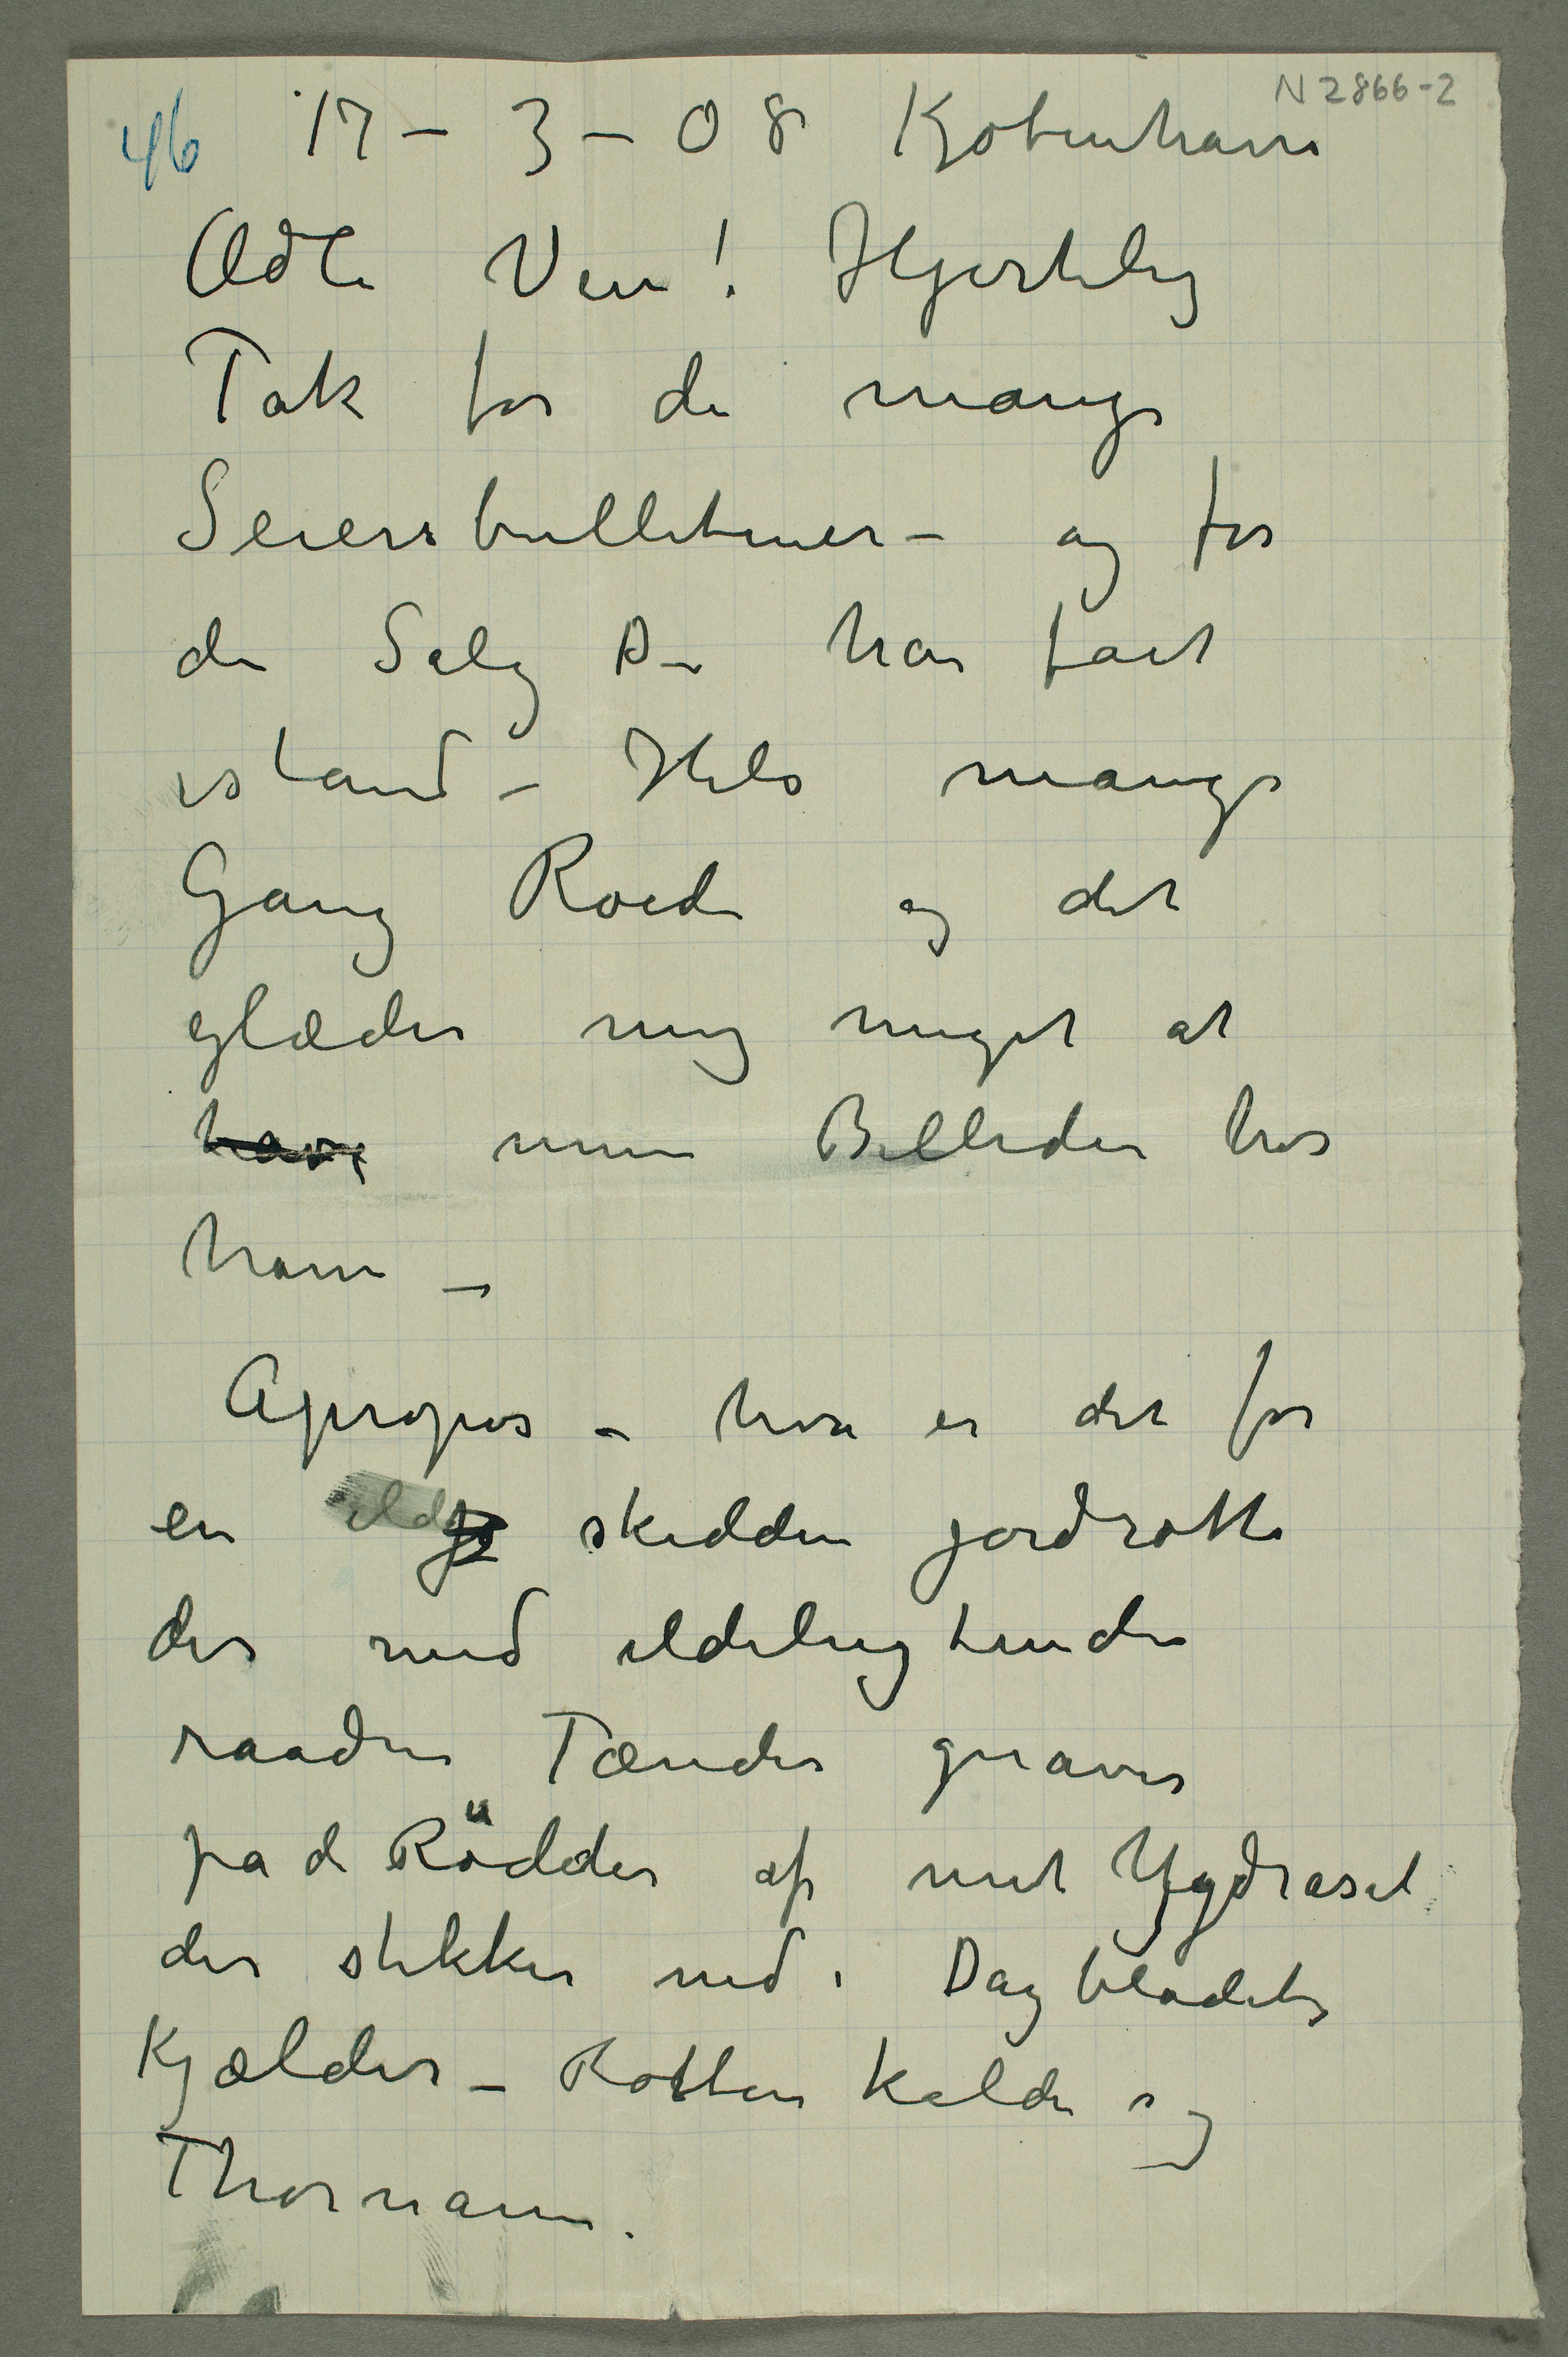 N 2866-2
46 17 – 3 – 08 Kjøbenhavn
Ædle Ven! Hjertelig
Tak for de mange
Seiersbulletiner – og for
de Salg Du har fået
istand – Hils mange
Gang Roede og det
glæder mig meget at
have mine Billeder hos
ham –
Apropos – hva er det for
en skidden jordrotte
der med ildelugtende
raadne Tænder gnaver
på de Rödder af mit Ygdrasil
der stikker ned i Dagbladets
Kjælder – Rotten kalder sig
Thormann.